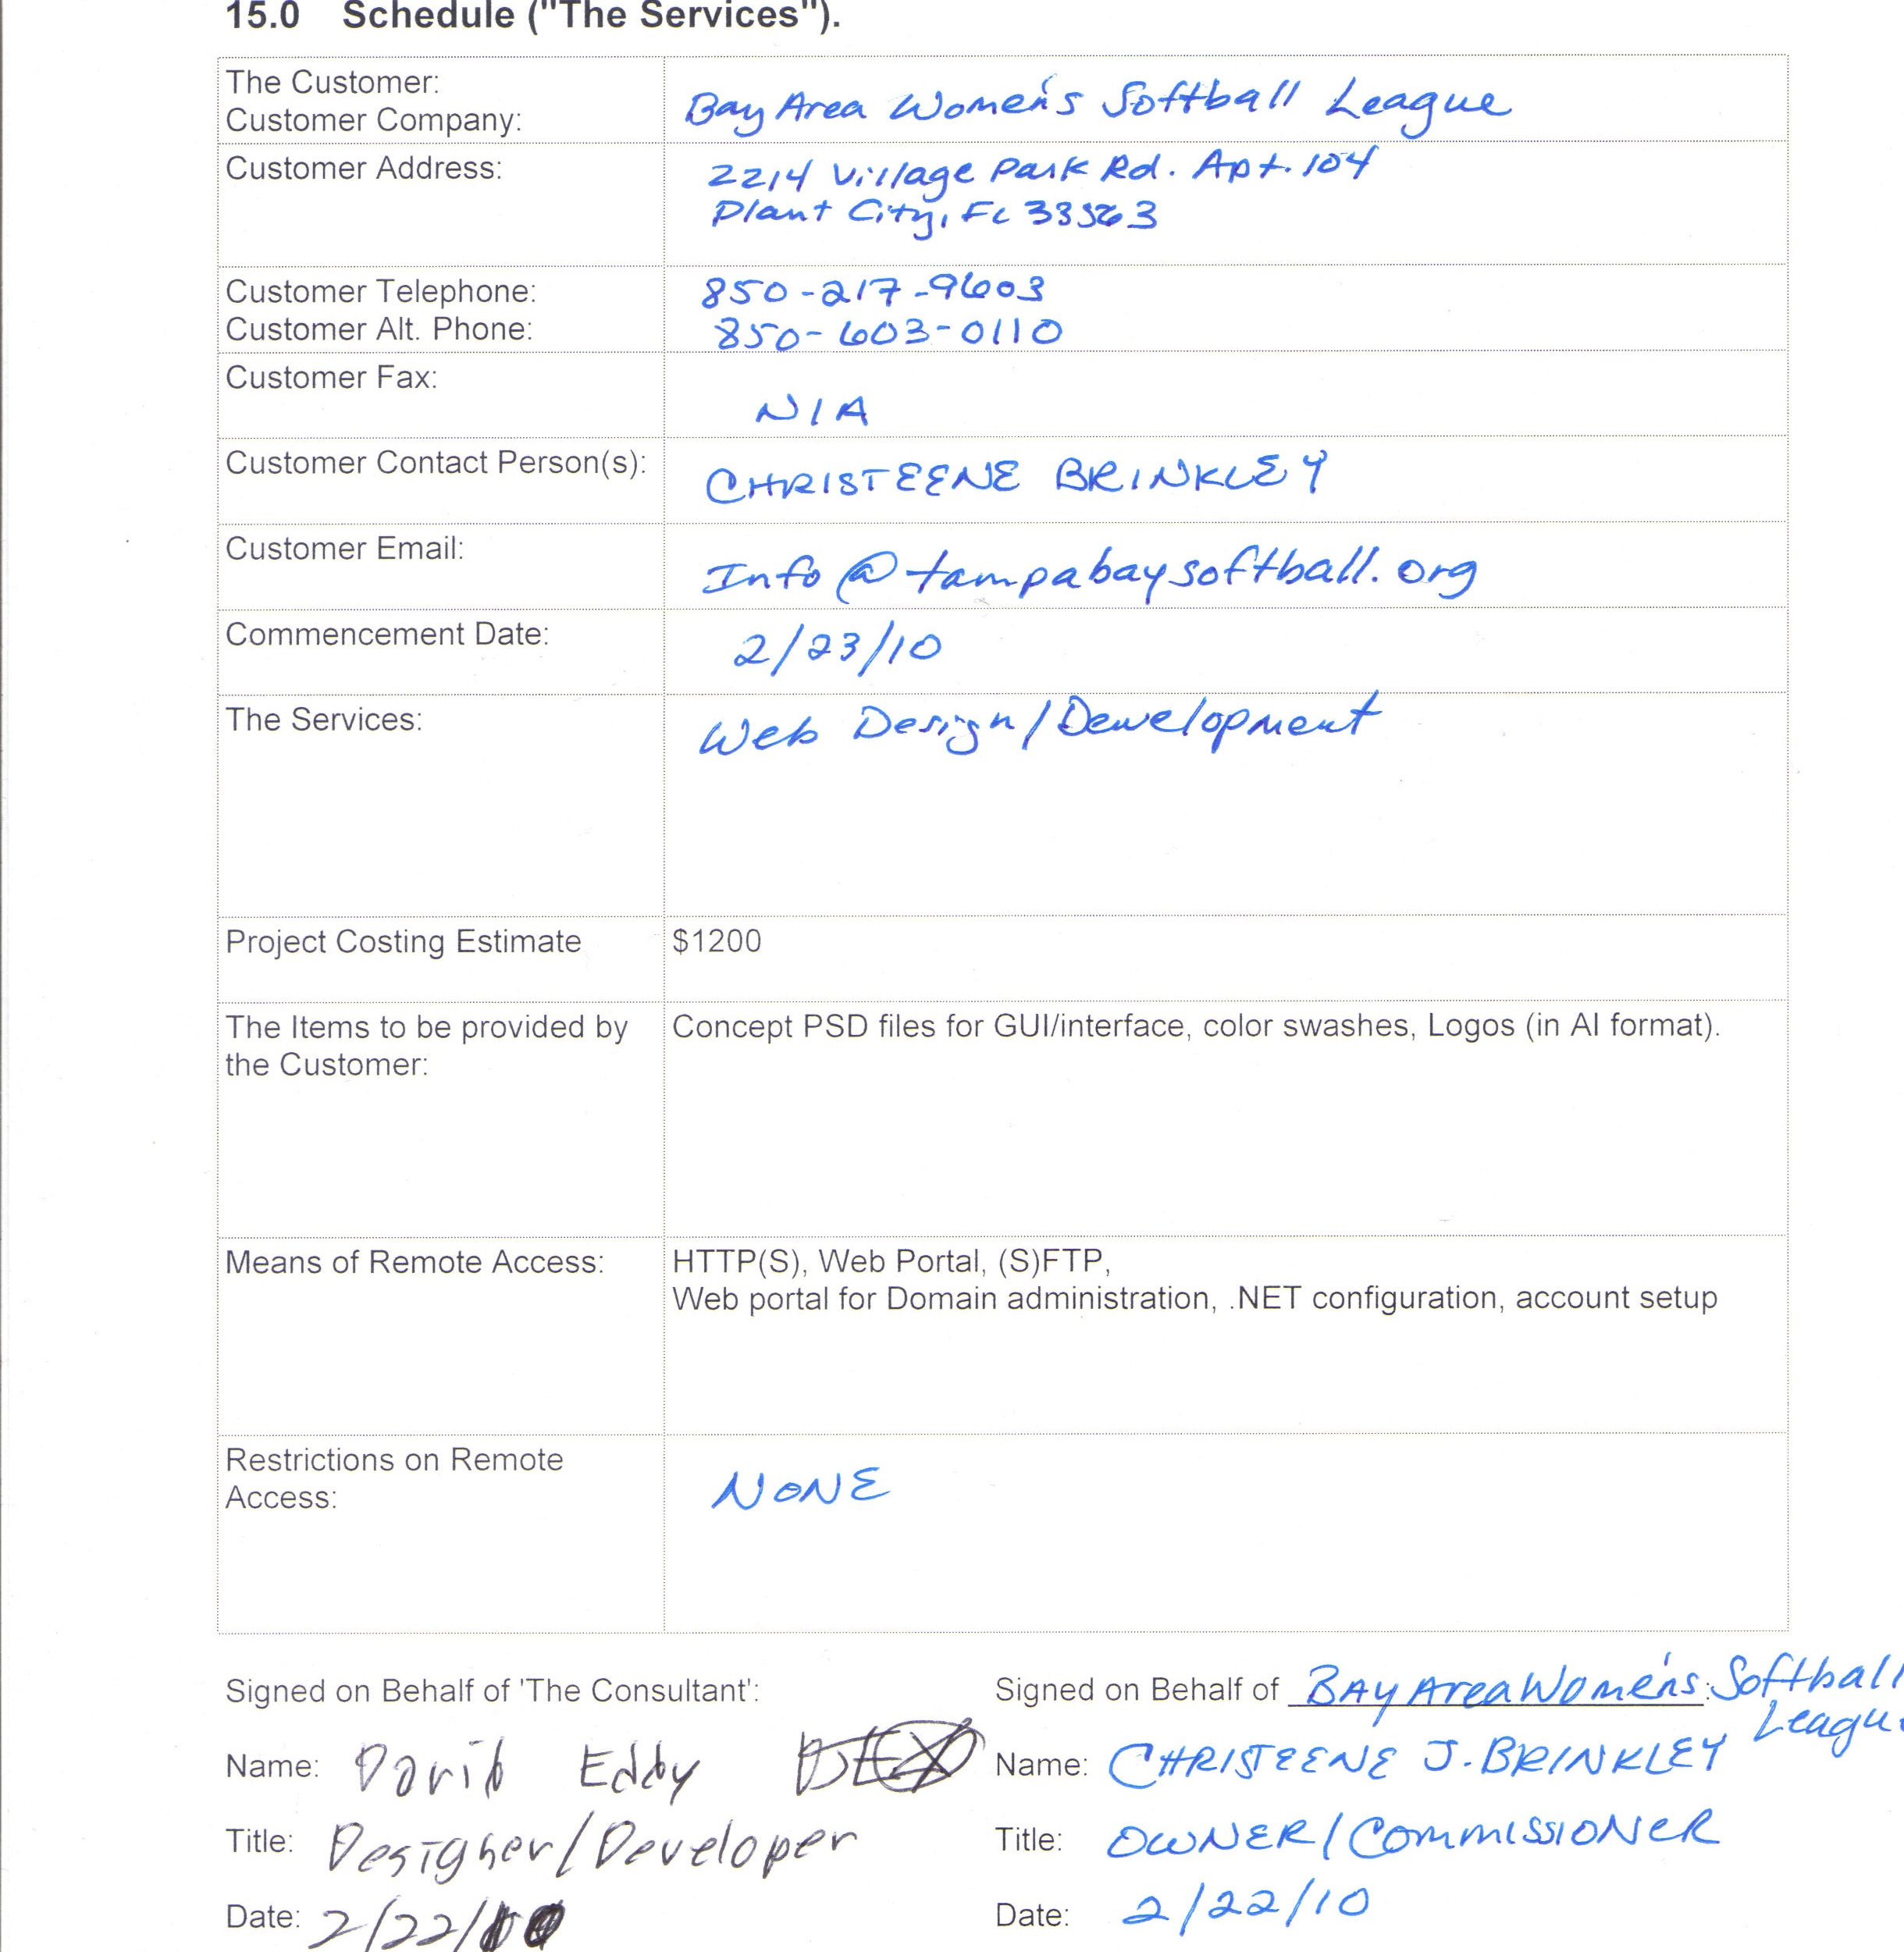 15.0 Schedule ("The Services").
The Customer:
Customer Company: Bay Area Women's Softball League
Customer Address: 2214 Village Park Rd. Apt. 104
Plant City, FL 33563
Customer Telephone: 850-217-9603
Customer Alt. Phone: 850-603-0110
Customer Fax: N/A
Customer Contact Person(s): CHRISTEENE BRINKLEY
Customer Email: Info@tampabaysoftball.org
Commencement Date: 2/23/10
The Services: Web Design/Development
Project Costing Estimate $1200
The Items to be provided by Concept PSD files for GUI/interface, color swashes, Logos (in AI format).
the Customer:
Means of Remote Access: HTTP(S), Web Portal, (S)FTP,
Web portal for Domain administration, .NET configuration, account setup
Restrictions on Remote
Access: NONE
Signed on Behalf of 'The Consultant': Signed on Behalf of Bay Area Women's: Softball
League
Name: David Eddy Name: CHRISTEENE J. BRINKLEY
Title: Designer/Developer Title: OWNER/COMMISSIONER
Date: 2/22/10 Date: 2/22/10